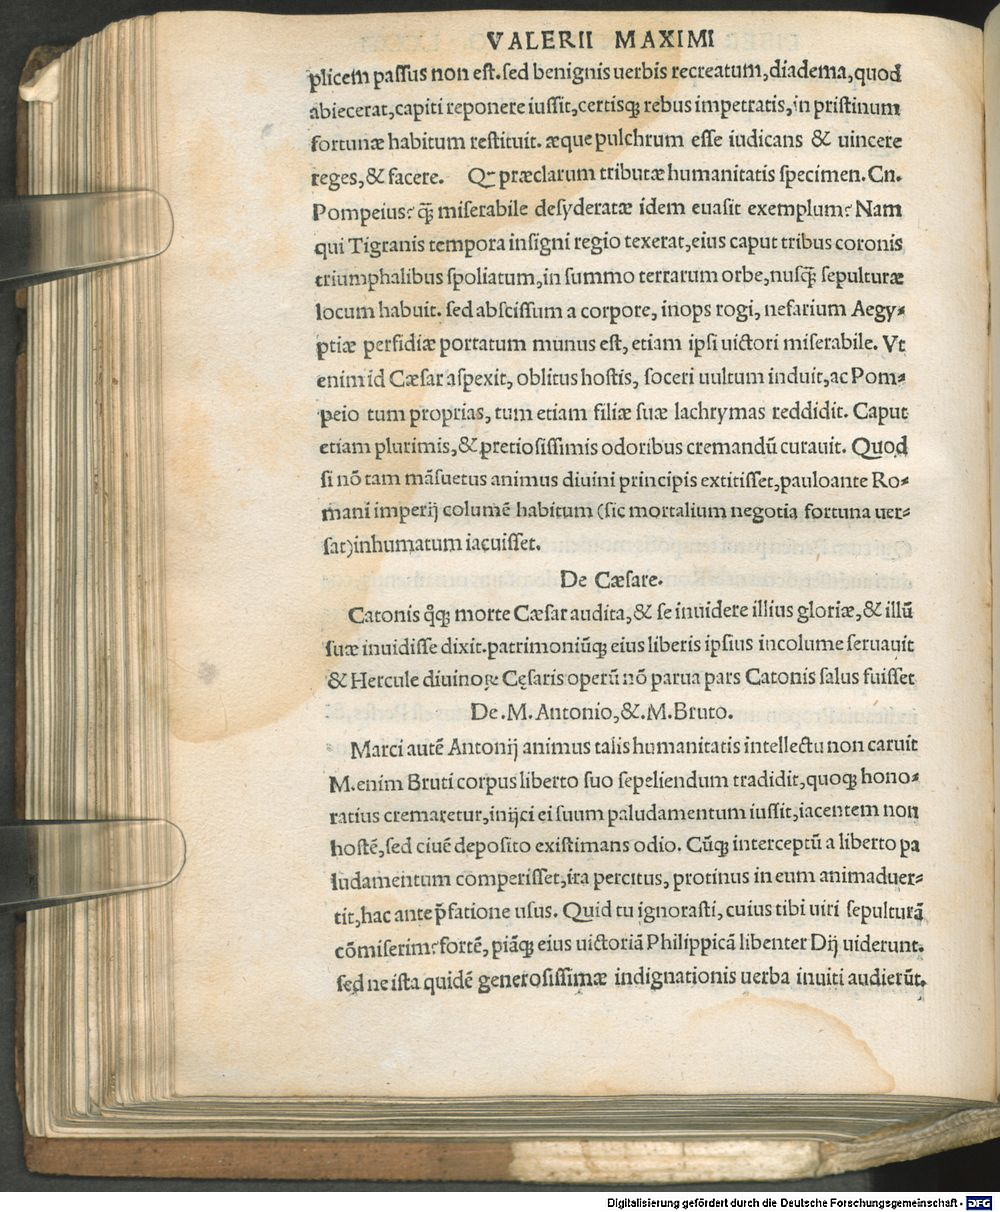 VALERII MAXIMI
plicem passus non est. sed benignis uerbis recreatum, diadema, quod
abiecerat, capiti reponere iussit, certisq; rebus impetratis, in pristinum
fortunæ habitum restituit. æque pulchrum esse iudicans & uincere
reges, & facere. Q præclarum tributæ humanitatis specimen. Cn.
Pompeius? q̃; miserabile desyderatæ idem euasit exemplum? Nam
qui Tigranis tempora insigni regio texerat, eius caput tribus coronis
triumphalibus spoliatum, in summo terrarum orbe, nusq̃; sepulturæ
locum habuit. sed abscissum a corpore, inops rogi, nefarium Aegy-
ptiæ perfidiæ portatum munus est, etiam ipsi uictori miserabile. Vt
enim id Cæsar aspexit, oblitus hostis, soceri uultum induit, ac Pom-
peio tum proprias, tum etiam filiæ suæ lachrymas reddidit. Caput
etiam plurimis, & pretiosissimis odoribus cremandũ curauit. Quod
si nõ tam mãsuetus animus diuini principis extitisset, pauloante Ro-
mani imperij columẽ habitum (sic mortalium negotia fortuna uer-
sat) inhumatum iacuisset.
De Cæsare.
Catonis q̊q; morte Cæsar audita, & se inuidere illius gloriæ, & illũ
suæ inuidisse dixit. patrimoniũq; eius liberis ipsius incolume seruauit
& Hercule diuinoꝝ Cęsaris operũ nõ parua pars Catonis salus fuisset
De .M. Antonio, &. M. Bruto.
Marci autẽ Antonij animus talis humanitatis intellectu non caruit
M. enim Bruti corpus liberto suo sepeliendum tradidit, quoq; hono-
ratius cremaretur, inijci ei suum paludamentum iussit, iacentem non
hostẽ, sed ciuẽ deposito existimans odio. Cũq; interceptũ a liberto pa
ludamentum comperisset, ira percitus, protinus in eum animaduer-
tit, hac ante p̃fatione usus. Quid tu ignorasti, cuius tibi uiri sepulturã
cõmiserim? fortẽ, piãq; eius uictoriã Philippicã libenter Dij uiderunt.
sed ne ista quidẽ generosissimæ indignationis uerba inuiti audierũt.
Digitalisierung gefördert durch die Deutsche Forschungsgemeinschaft - DFG